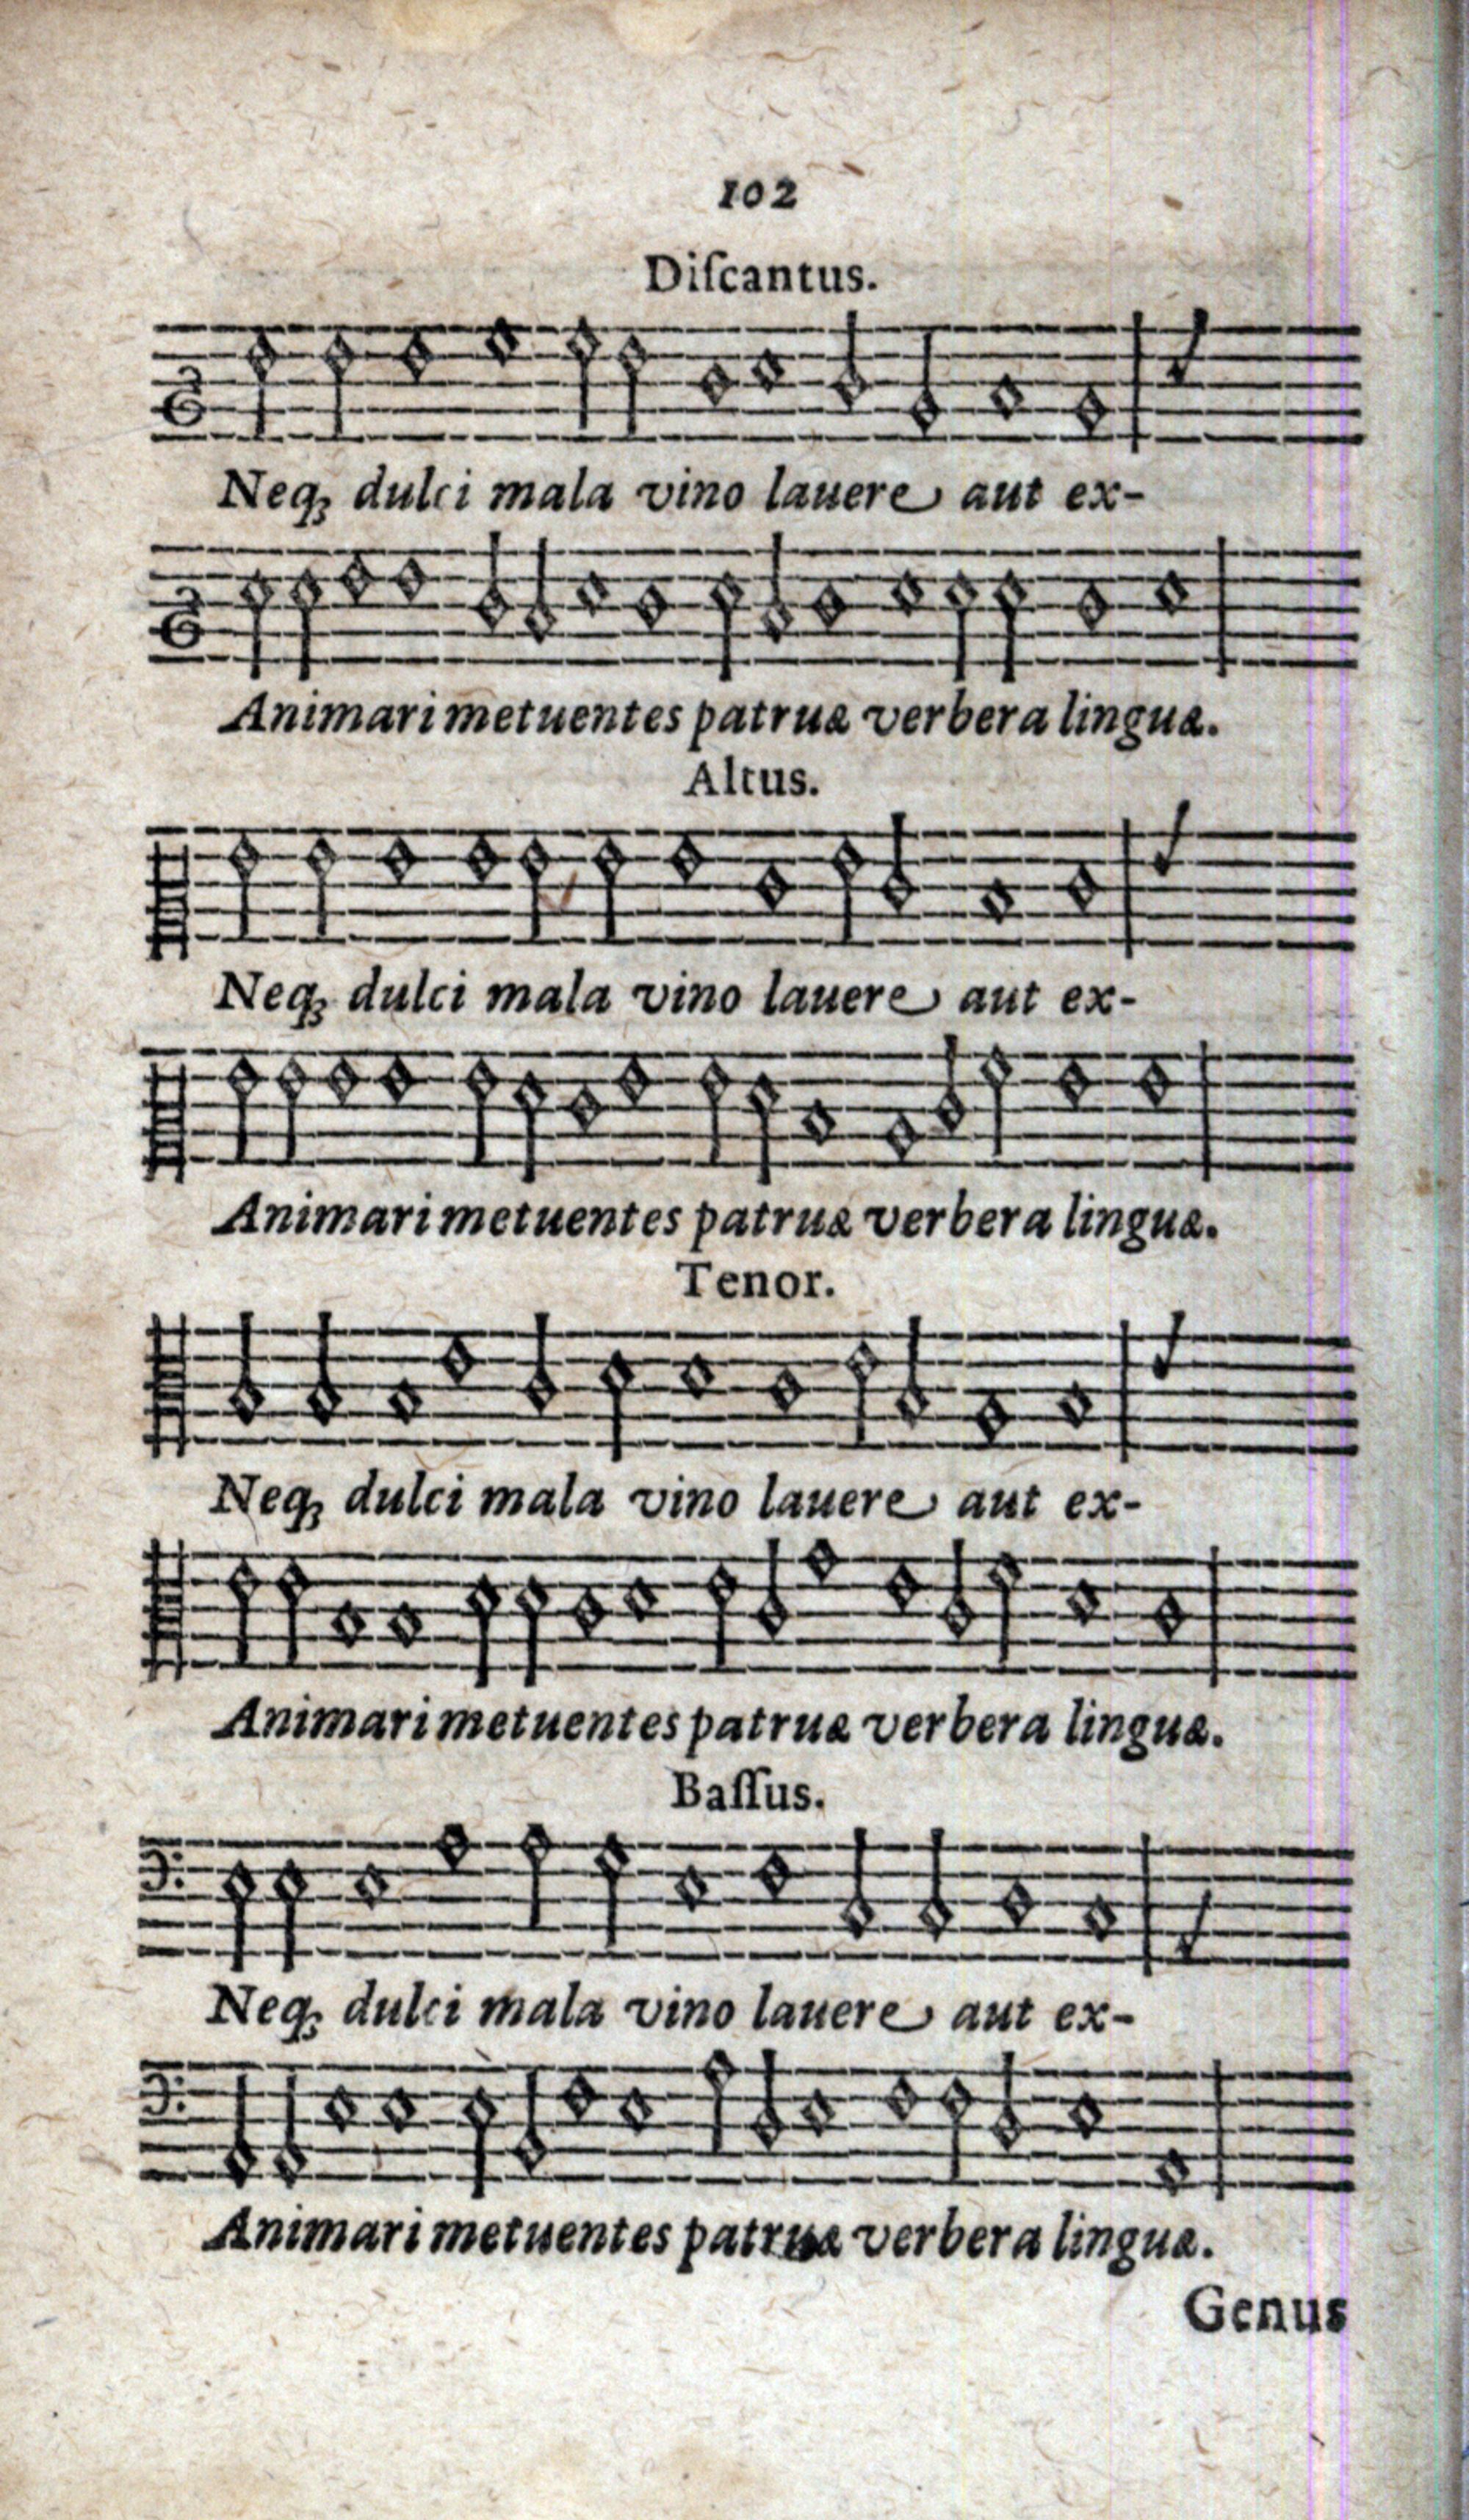 102
Diſcantus.
Neqꝫ dulci mala vino lauere aut ex-
Animari metuentes patruæ verbera linguæ.
Altus.
Neqꝫ dulci mala vino lauere aut ex-
Animari metuentes patruæ verbera linguæ.
Tenor.
Neqꝫ dulci mala vino lauere aut ex-
Animari metuentes patruæ verbera linguæ.
Baſſus.
Neqꝫ dulci mala vino lauere aut ex-
Animari metuentes patruæ verbera linguæ.
Genus